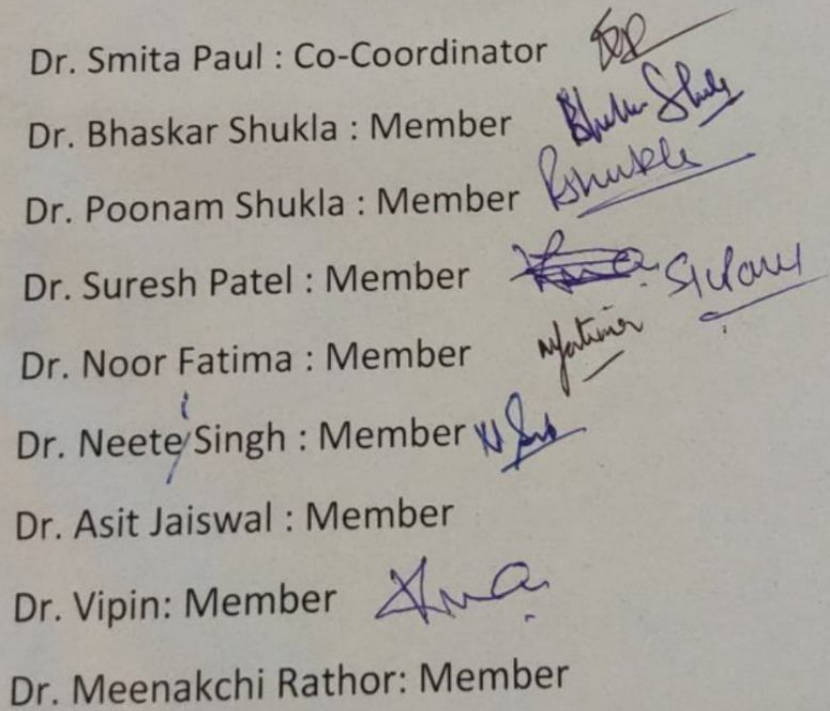 Dr. Smita Paul : Co-Coordinator
Dr. Bhaskar Shukla : Member
Dr. Poonam Shukla : Member
Dr. Suresh Patel : Member
Dr. Noor Fatima : Member
Dr. Neete/i Singh : Member
Dr. Asit Jaiswal : Member
Dr. Vipin: Member
Dr. Meenakchi Rathor: Member